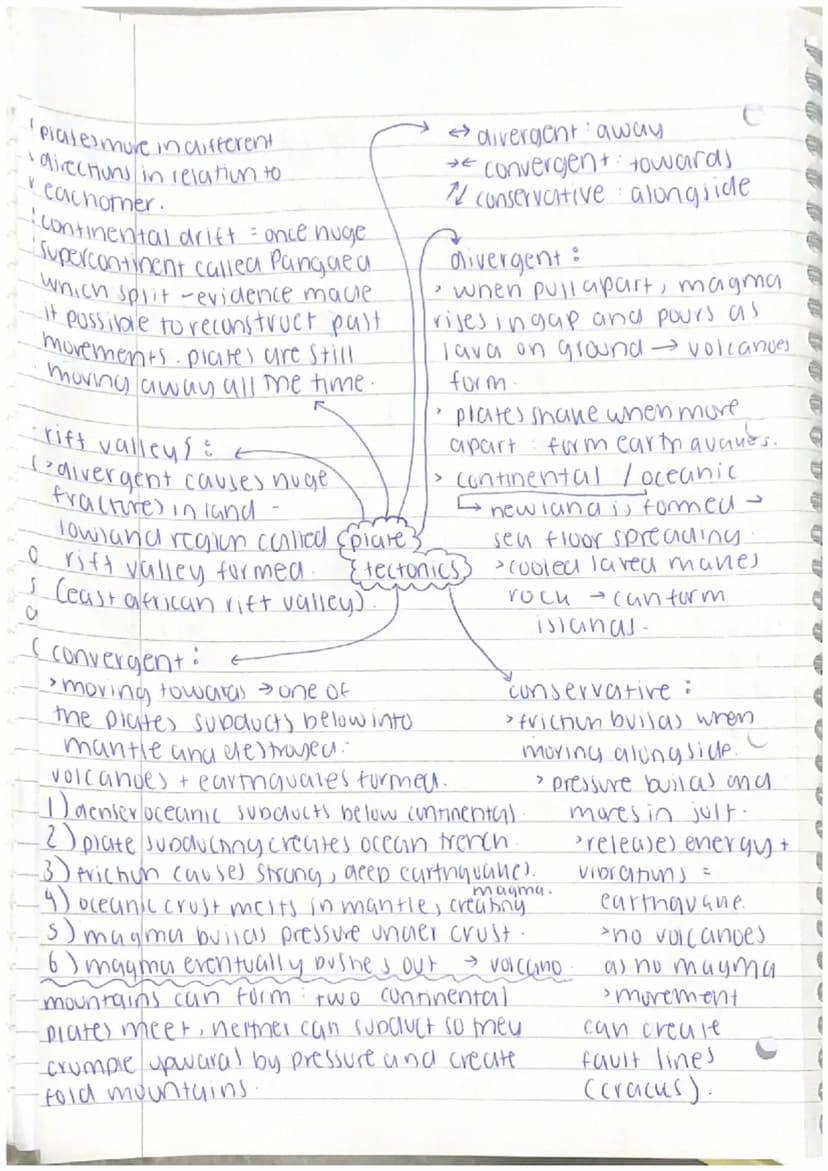 plates move in different
directions in relation to
eachother.
continental drift = once huge
supercontinent called Pangaea
which split - evidence made
it possible to reconstruct past
movements. plates are still
moving away all the time.
rift valleys:
> divergent causes huge
fractures in land -
lowland region called
rift valley formed.
(east african rift valley).
plate
tectonics
↔ divergent : away
→← convergent : towards
⇅ conservative : alongside
divergent :
> when pull apart, magma
rises in gap and pours as
lava on ground → volcanoes
form.
> plates shake when move
apart : form earthquakes.
> continental / oceanic
↳ new land is formed →
sea floor spreading.
> cooled lava makes
rock → can form
islands.
convergent :
> moving towards → one of
the plates subducts below into
mantle and destroyed.
volcanoes + earthquakes formed.
1) denser oceanic subducts below continental.
2) plate subducting creates ocean trench.
3) friction causes strong, deep earthquakes.
4) oceanic crust melts in mantle, creating magma.
5) magma builds pressure under crust.
6) magma eventually pushes out → volcano.
mountains can form : two continental
plates meet, neither can subduct so they
crumple upward by pressure and create
fold mountains.
conservative :
> friction builds when
moving alongside.
> pressure builds and
moves in jolt.
> releases energy +
vibrations =
earthquake.
> no volcanoes
as no magma
> movement
can create
fault lines
(cracks).